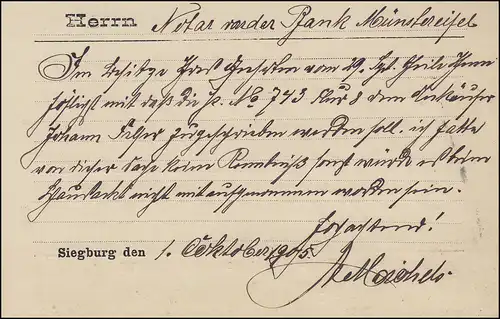 Herrn Notar van der Bank Münstereifel
Im Besitze Ihres Geehrten vom 29. Spt. theile Ihnen
höflichst mit daß die P. No 743 Flur 8 dem Ankäufer
Johann zugeschrieben werden soll. ich hatte
von dieser Sache keine Kenntniß sonst würde es beim
nicht mit aufgenommen worden sein.
Hochachtend!
Siegburg den 1. Oktober 1905